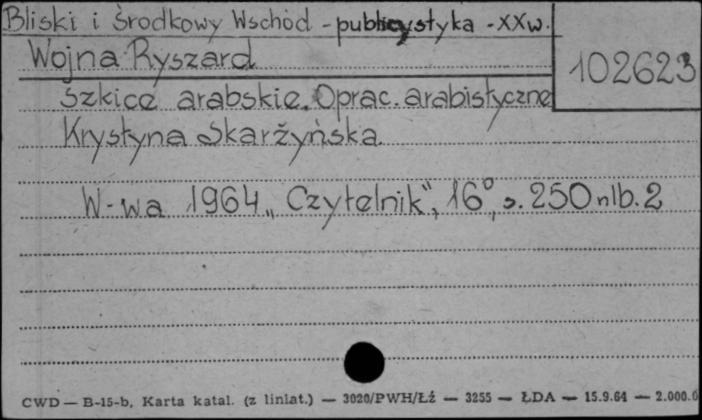 Bliski i Środkowy Wschód - publicystyka - XXw.
Wojna Ryszard
102623
Szkice arabskie. Oprac. arabistyczne
Krystyna Skarżyńska.
W-wa 1964 „Czytelnik", 16°, s. 250 nlb. 2
CWD — B-15-b, Karta katal. (z liniat.) — 3020/PWH/Łź — 3255 — ŁDA — 15.9.64 — 2.000.0